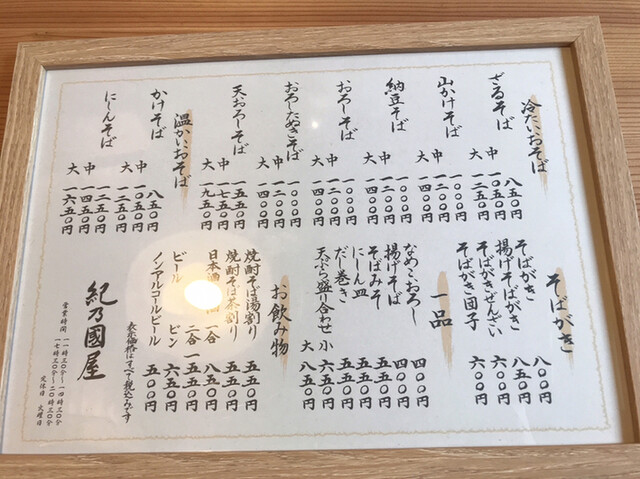 冷たいおそば
ざるそば 八五〇円
中 一〇五〇円
大 一二五〇円
山かけそば 一〇〇〇円
中 一二〇〇円
大 一四〇〇円
納豆そば 一〇〇〇円
中 一二〇〇円
大 一四〇〇円
おろしそば 一〇〇〇円
中 一二〇〇円
大 一四〇〇円
おろしたぬきそば 一〇〇〇円
中 一二〇〇円
大 一四〇〇円
天おろしそば 一五五〇円
中 一七五〇円
大 一九五〇円
温かいおそば
かけそば 八五〇円
中 一〇五〇円
大 一二五〇円
にしんそば 一二五〇円
中 一四五〇円
大 一六五〇円
そばがき
そばがき 八〇〇円
揚げそばがき 八五〇円
そばがきぜんざい 六〇〇円
そばがき団子 六〇〇円
一品
なめこおろし 四〇〇円
揚げそば 四〇〇円
そばみそ 五五〇円
にしん皿 五五〇円
だし巻き 五五〇円
天ぷら盛り合わせ 小 五五〇円
大 八五〇円
お飲み物
焼酎そば湯割り 五五〇円
焼酎そば茶割り 五五〇円
日本酒 一合 八五〇円
二合 一五五〇円
ビール ビン 六五〇円
ノンアルコールビール 五五〇円
表示価格はすべて税込みです
紀乃國屋
営業時間 一一時三〇分〜一四時三〇分
一七時三〇分〜二〇時三〇分
定休日 火曜日